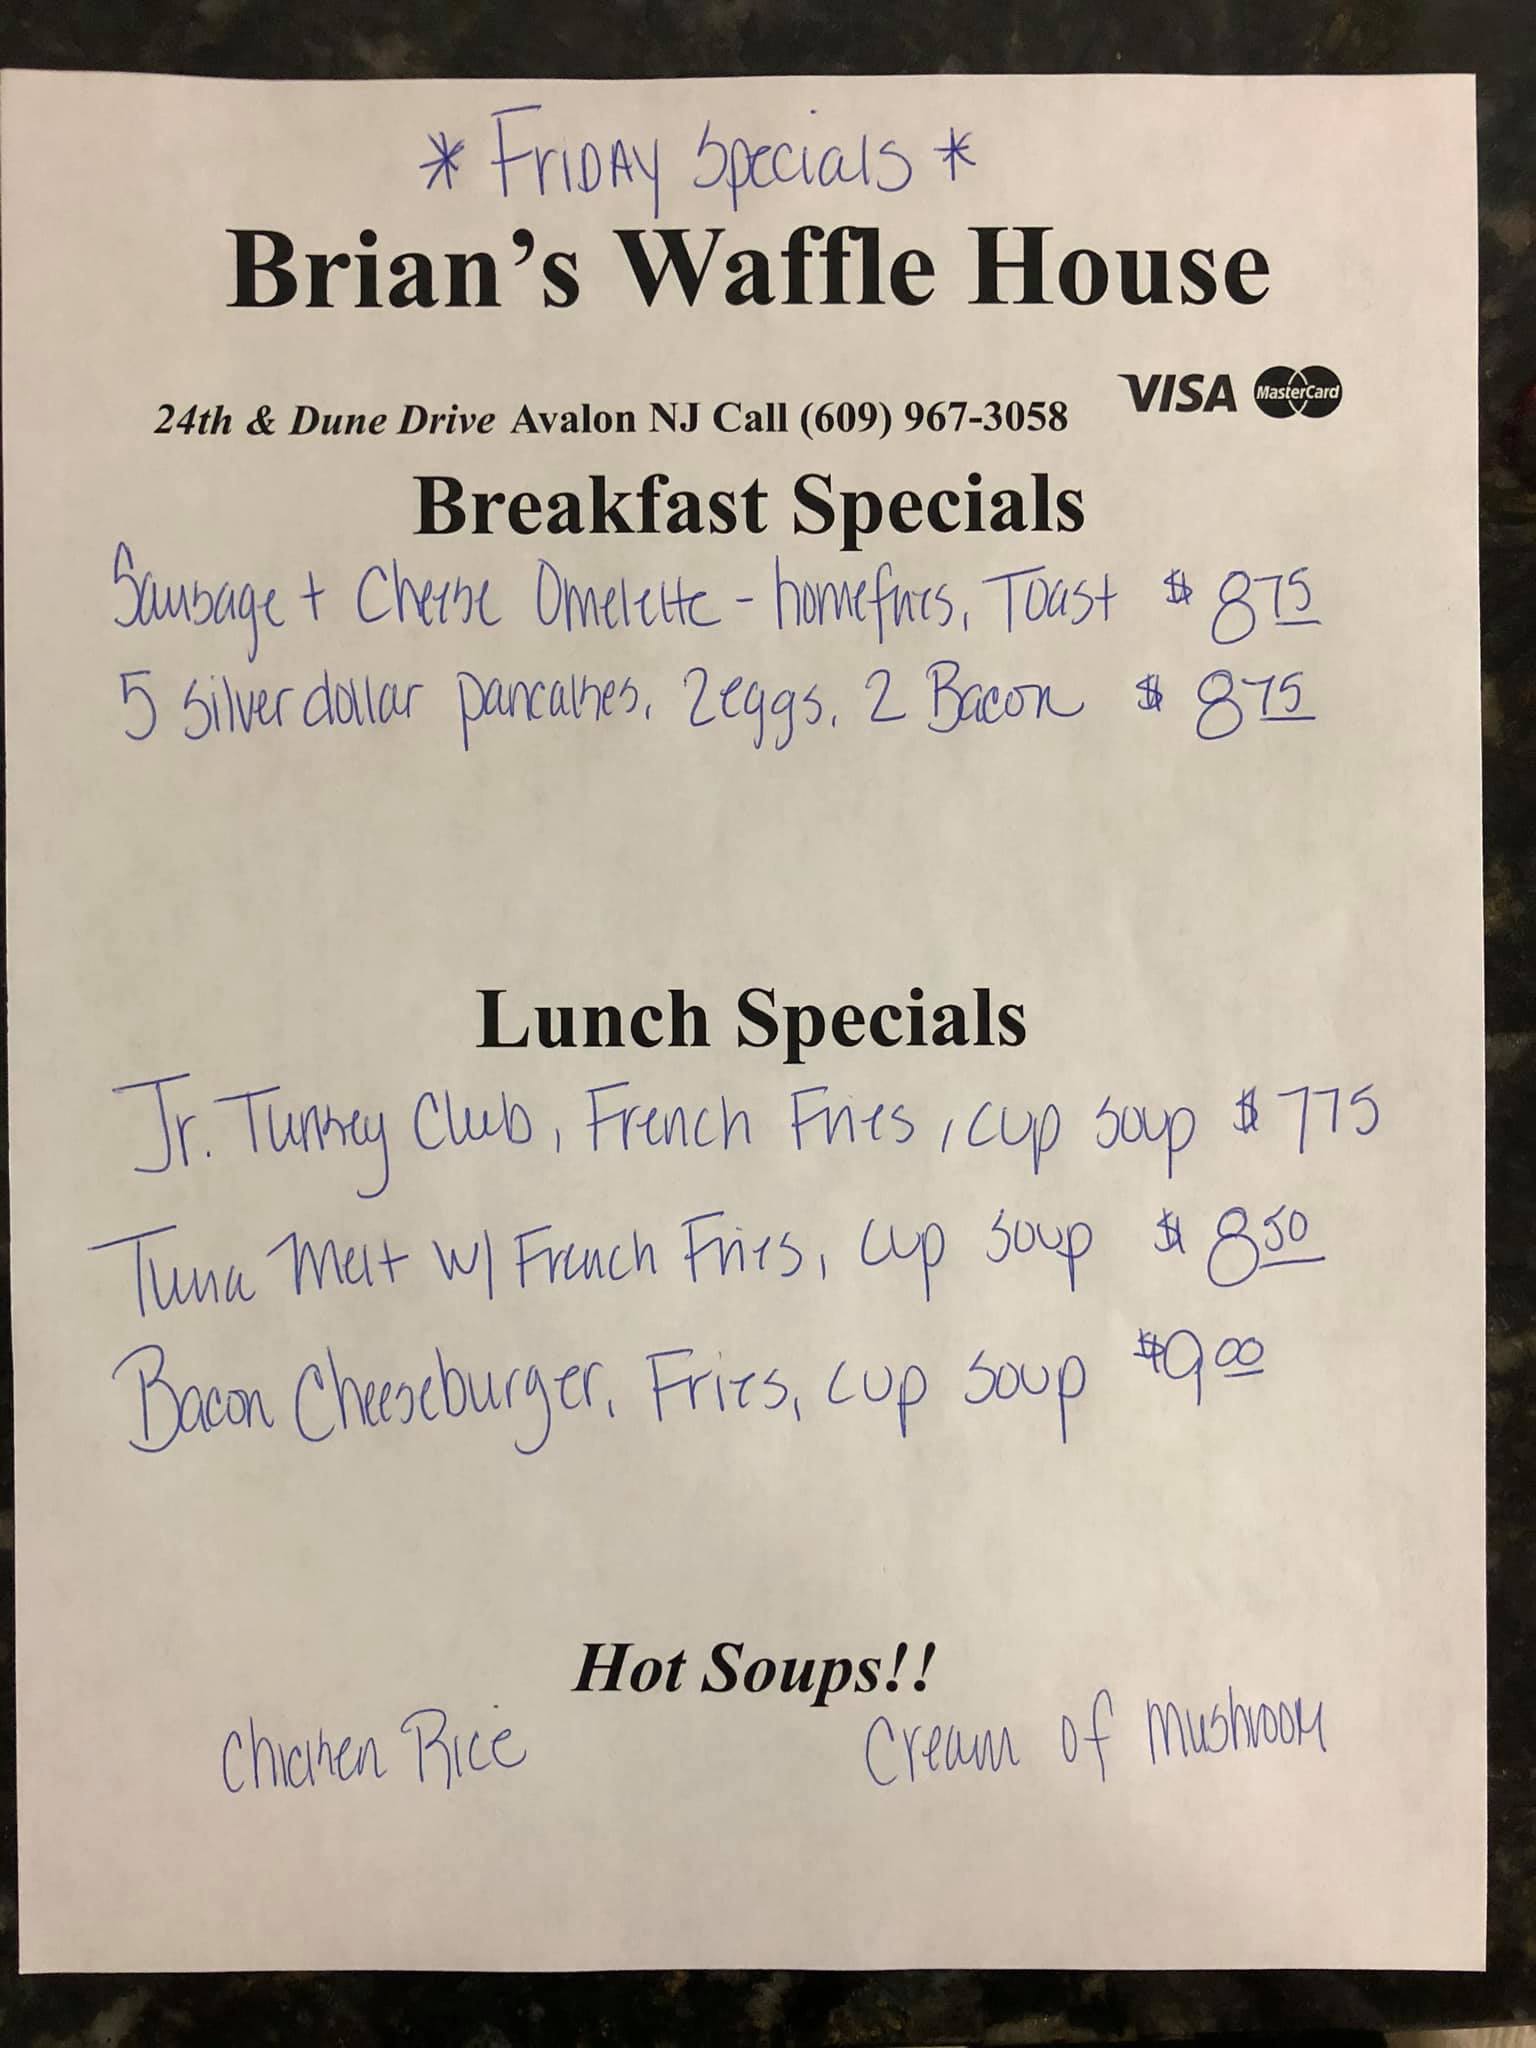 * FRIDAY Specials *
Brian's Waffle House
24th & Dune Drive Avalon NJ Call (609) 967-3058 VISA MasterCard
Breakfast Specials
Sausage + Cheese Omelette - homefries, Toast $8 75
5 silver dollar pancakes, 2 eggs, 2 Bacon $8 75
Lunch Specials
Jr. Turkey Club, French Fries, cup soup $775
Tuna Melt w/ French Fries, cup soup $8 50
Bacon Cheeseburger, Fries, cup soup $9 00
Hot Soups!!
Chicken Rice Cream of Mushroom